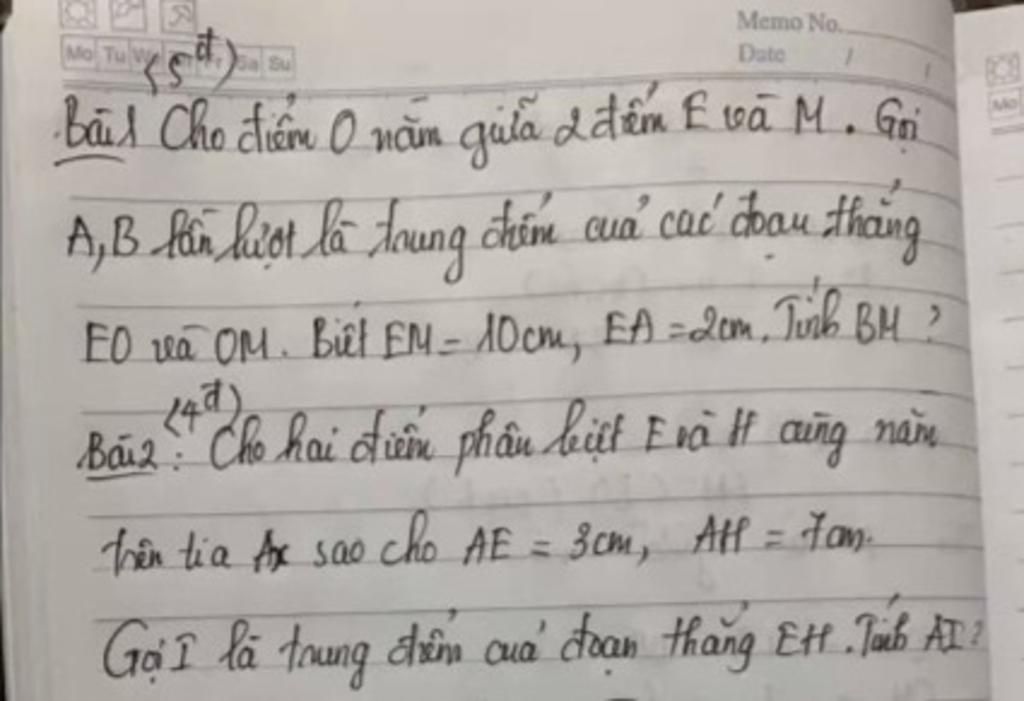 Memo No.
Mo Tu W Sa Su
Date / /
(5đ)
Bài 1 Cho điểm O nằm giữa 2 điểm E và M. Gọi
A, B lần lượt là trung điểm của các đoạn thẳng
EO và OM. Biết EM = 10cm, EA = 2cm. Tính BM?
(4đ)
Bài 2: Cho hai điểm phân biệt E và H cùng nằm
trên tia Ax sao cho AE = 3cm, AH = 7cm.
Gọi I là trung điểm của đoạn thẳng EH. Tính AI?
Mo